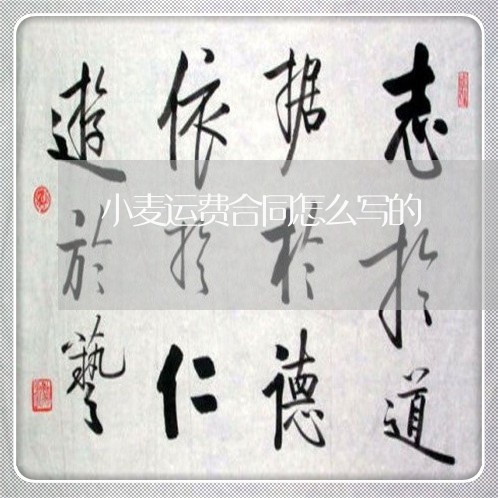 志於道
据於德
依於仁
遊於藝
小麦运费合同怎么写的